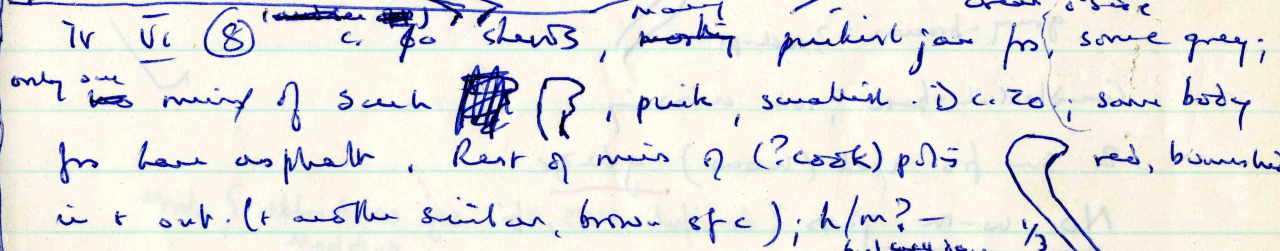 many
Tr VI (8) c. 60 sherds, pinkish jar frs, some grey;
only one rims of such , pink, smallish. D c. 20; some body
frs have asphalt. Rest of rims of (?cook) pots red, burnished
in + out. (+ another similar, brown sfc); h/m? —
1/3